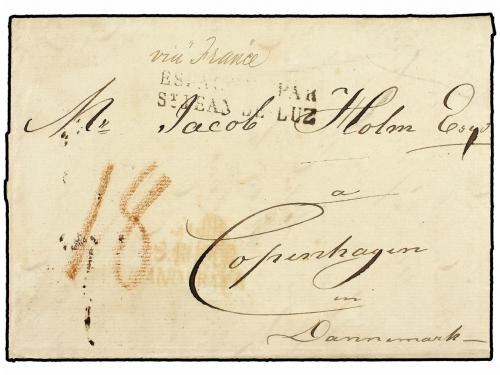 via France
ESPAGNE PAR
ST JEAN DE LUZ
Mr Jacob Holm Esqr
a
Copenhagen
in
Dannemark
18